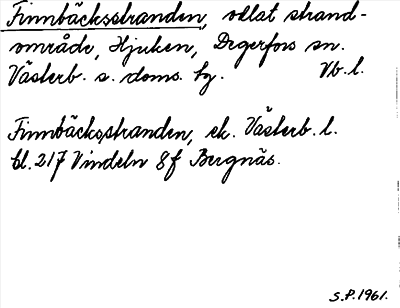 Finnbäcksstranden, oklat strand-
område, Hjuken, Degerfors sn.
Västerb. s. doms. hg. Vb. l.
Finnbäcksstranden, ek. Västerb. l.
bl. 217 Vindeln 8f Bergnäs.
S.P. 1961.